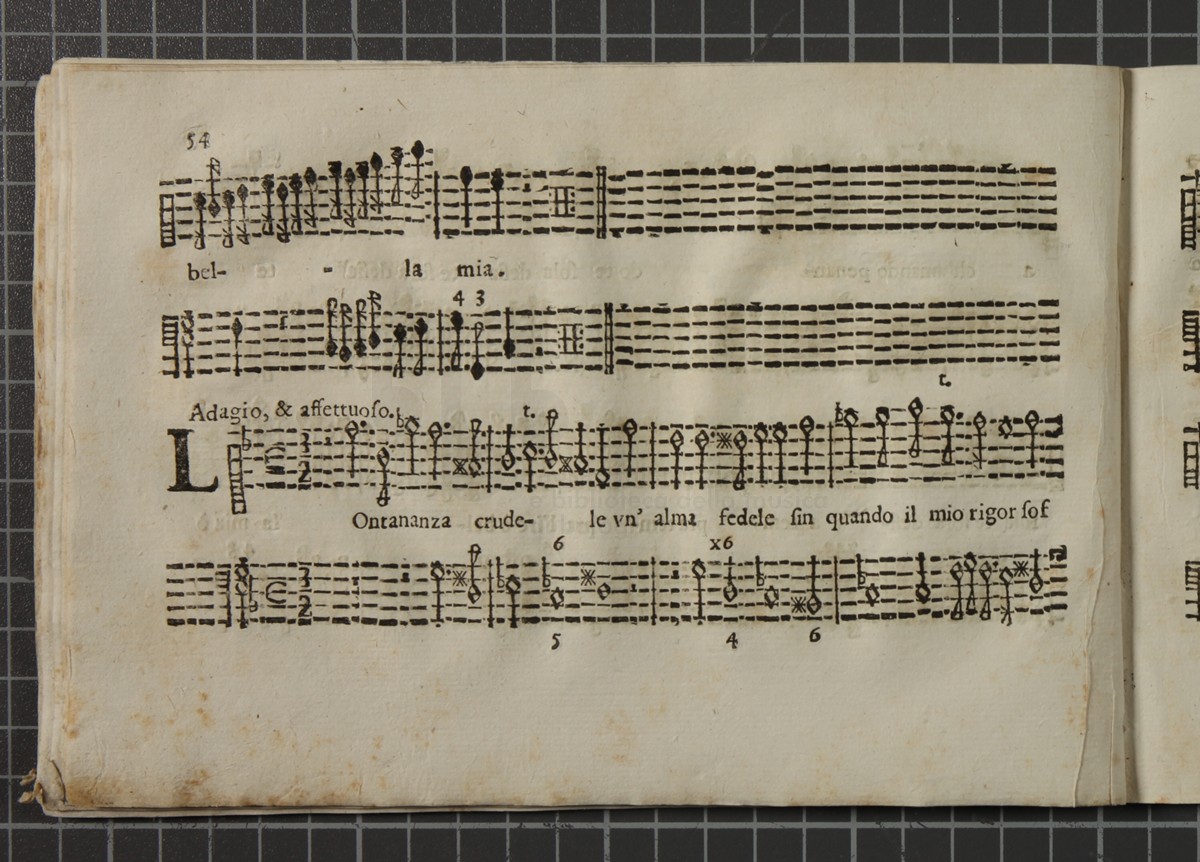 54
bel- - la mia.
4 3
t.
Adagio, & affettuoſo. t.
LOntananza crude- le vn' alma fedele ſin quando il mio rigor ſof
6 x6
5 4 6